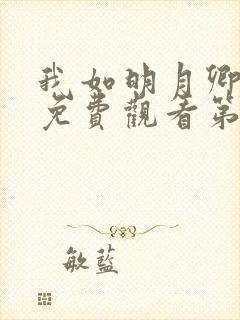 我如明月卿
免費觀看第
敏藍